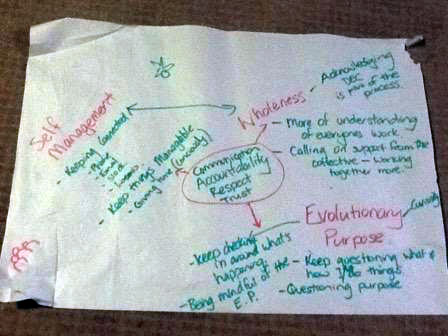 Self
Management
- Keeping connected
- Phone
- Email
- Keep things manageable
Wholeness - Acknowledging
is part of the
process.
- More of understanding
of everyones work.
- Calling on support from the
collective - working
together more.
Communication
Accountability
Respect
Trust
Evolutionary
Purpose
- Curiosity
- Keep checking
in around what's
happening
- Being mindful of the
E.P.
- Keep questioning what &
how I/we do things
- Questioning purpose